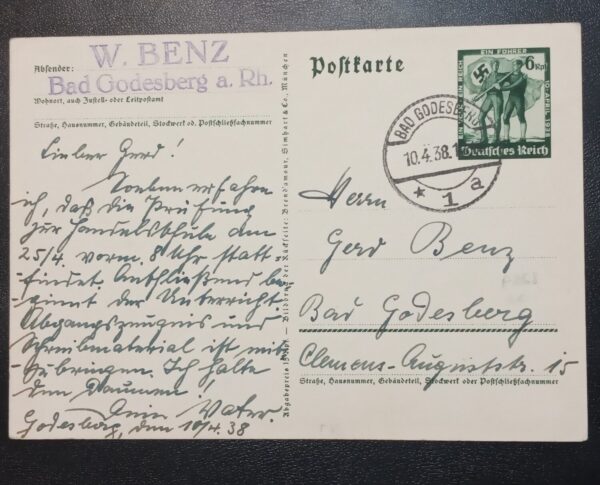 Absender:
W. BENZ
Bad Godesberg a. Rh.
Wohnort, auch Zustell- oder Leitpostamt
Straße, Hausnummer, Gebäudeteil, Stockwerk od. Postschließfachnummer
Lieber Gerd!
Soeben erfahre
ich, daß die Prüfung
zur Handelsschule am
25/4. vorm. 8 Uhr statt-
findet. Anschließend be-
ginnt der Unterricht.
Abgangszeugnis und
Schreibmaterial ist mit-
zubringen. Ich halte
den Daumen!
Dein Vater.
Godesberg, den 10/4. 38
Abgabepreis 15 Rpf. — Bildbreite der Rückseite: Brendamour, Simhart & Co., München
Postkarte
EIN FÜHRER
EIN VOLK EIN REICH
10. APRIL 1938
6 Rpf
Deutsches Reich
BAD GODESBERG
10.4.38.1
* 1 a
Herrn
Gerd Benz
Bad Godesberg
Clemens-Auguststr. 15
Straße, Hausnummer, Gebäudeteil, Stockwerk oder Postschließfachnummer